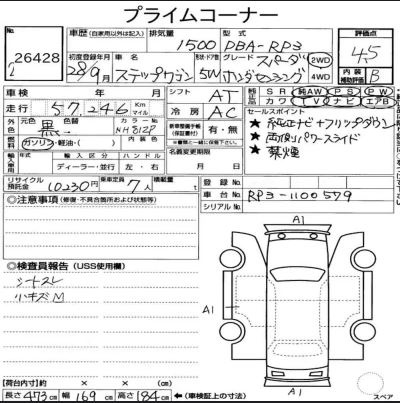 プライムコーナー
2 26428
車歴 (自家用以外は記入) 排気量 1500 型式 DBA-RP3
評価点 4.5
内装補助評価 B
初度登録年月 28/9月 車名 ステップワゴン ドア 5W グレード スパーダ ホンダセンシング 2WD 4WD
車検 年 月
走行 57,246 Km マイル
シフト AT
冷房 AC
純正 SR 純AW PS PW
高カワ TV ナビ エアB
外装色 元色 黒 カラーNo. NH812P
燃料 ガソリン・軽油・( ) 内装色
新車整備手帳(保証書) 有・無
セールスポイント
★ 純正ナビ+フリップダウン
★ 両側パワースライド
★ 禁煙
輸入車 輸入区分 ハンドル
ディーラー・並行 左・右
名義変更期限
リサイクル預託金 10230円 乗車定員 7人 積載量 t
登録No.
車台No. RP3-1100579
シリアルNo.
◎注意事項 (修復・不具合箇所および状態等)
◎検査員報告 (USS使用欄)
シートスレ
小キズM
A1
A1
A1
スペア
【荷台内寸】 約 × × cm
長さ 473 cm 幅 169 cm 高さ 184 cm ←(車検証上の寸法)